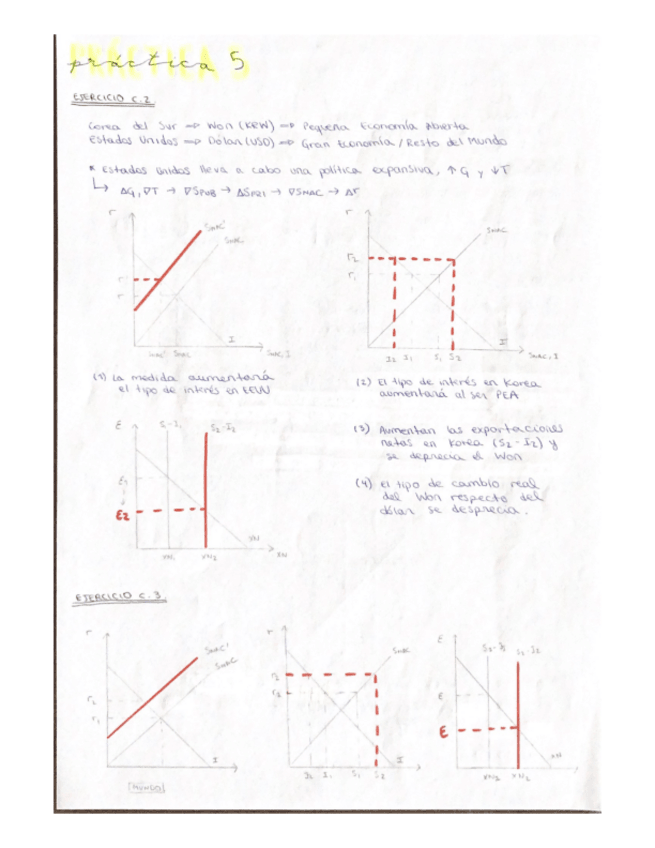 PRÁCTICA 5
práctica 5
EJERCICIO C.2
Corea del Sur => Won (KRW) => Pequeña Economía Abierta
Estados Unidos => Dólar (USD) => Gran Economía / Resto del Mundo
* Estados Unidos lleva a cabo una política expansiva, ↑ G y ↓ T
↳ ΔG, ∇T → ∇SPUB → ΔSPRI → ∇SNAC → Δr
r
SNAC'
SNAC
r
r
I
SNAC' SNAC
SNAC, I
r
SNAC
r2
r1
I
I2 I1 S1 S2
SNAC, I
(1) La medida aumentará
el tipo de interés en EEUU
(2) El tipo de interés en Korea
aumentará al ser PEA
(3) Aumentan las exportaciones
netas en Korea (S2-I2) y
se deprecia el Won
(4) El tipo de cambio real
del Won respecto del
dólar se desprecia.
E
S1-I1
S2-I2
E1
E2
XN
XN1 XN2
XN
EJERCICIO C.3.
r
SNAC'
SNAC
r2
r1
I
MUNDO
r
SNAC
r2
I
I2 I1 S1 S2
E
S2-I2
E
E
XN
XN2